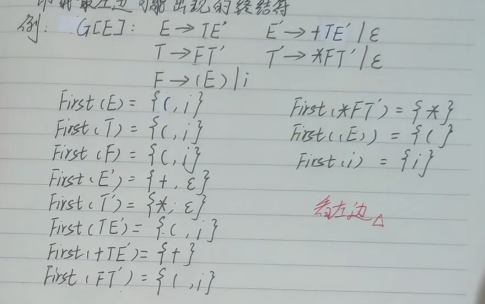 即将最左边可能出现的终结符
例: G[E]: E→TE′ E′→+TE′|ε
T→FT′ T′→*FT′|ε
F→(E)|i
First(E)={(,i}
First(T)={(,i}
First(F)={(,i}
First(E′)={+,ε}
First(T′)={*,ε}
First(TE′)={(,i}
First(+TE′)={+}
First(FT′)={(,i}
First(*FT′)={*}
First((E))={(}
First(i)={i}
看左边△